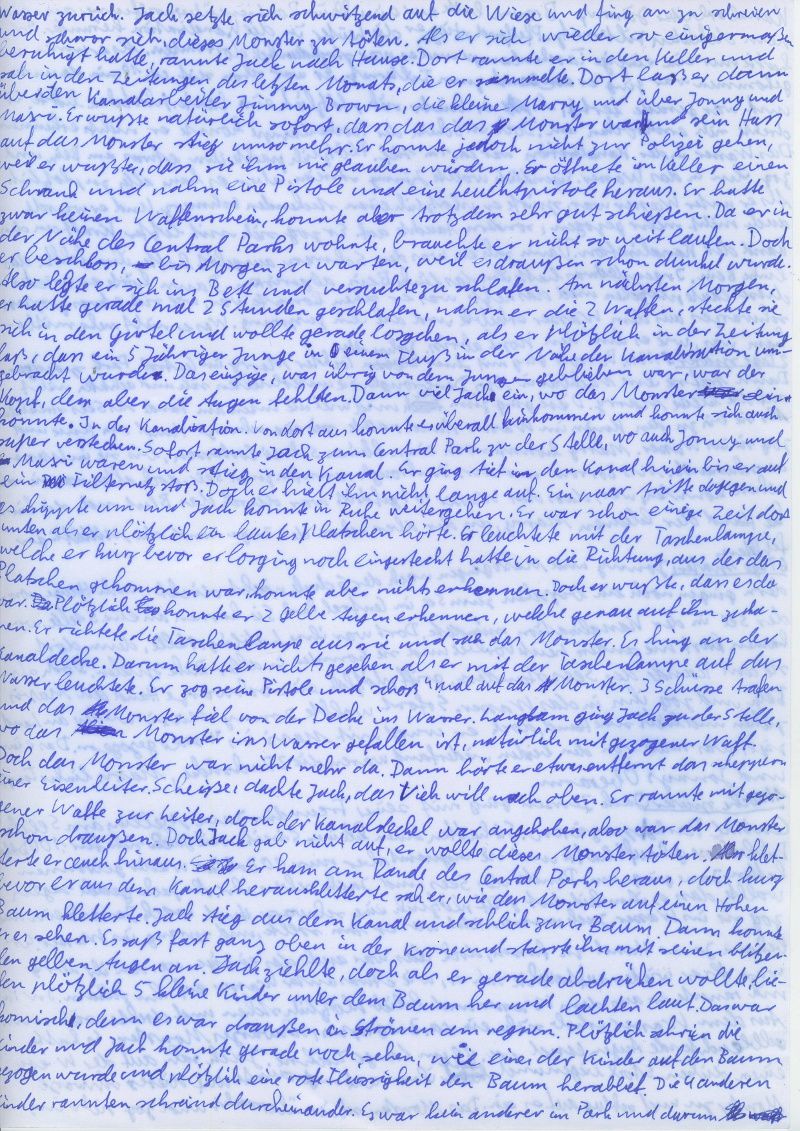 Wasser zurück. Jack setzte sich schwitzend auf die Wiese und fing an zu schreien
und schwor sich, dieses Monster zu töten. Als er sich wieder so einigermaßen
beruhigt hatte, rannte Jack nach Hause. Dort rannte er in den Keller und
sah in den Zeitungen des letzten Monats, die er sammelte. Dort laß er dann
über den Kanalarbeiter Jimmy Brown, die kleine Marry und über Jonny und
Maxi. Er wußte natürlich sofort, dass das das Monster war und sein Hass
auf das Monster stieg umso mehr. Er konnte jedoch nicht zur Polizei gehen,
weil er wußte, dass sie ihm nie glauben würden. Er öffnete im Keller einen
Schrank und nahm eine Pistole und eine Leuchtpistole heraus. Er hatte
zwar keinen Waffenschein, konnte aber trotzdem sehr gut schießen. Da er in
der Nähe des Central Parks wohnte, brauchte er nicht so weit laufen. Doch
er beschloss, bis Morgen zu warten, weil es draußen schon dunkel wurde.
Also legte er sich ins Bett und versuchte zu schlafen. Am nächsten Morgen,
er hatte gerade mal 2 Stunden geschlafen, nahm er die 2 Waffen, steckte sie
sich in den Gürtel und wollte gerade losgehen, als er plötzlich in der Zeitung
laß, dass ein 5 Jähriger Junge in einem Fluß in der Nähe der Kanalisation um-
gebracht wurde. Das einzige, was übrig von dem Jungen geblieben war, war der
Kopf, dem aber die Augen fehlten. Dann viel Jack ein, wo das Monster sein
könnte. In der Kanalisation. Von dort aus konnte es überall hinkommen und konnte sich auch
super verstecken. Sofort rannte Jack zum Central Park zu der Stelle, wo auch Jonny und
Maxi waren und stieg in den Kanal. Er ging tief in den Kanal hinein bis er auf
ein Filternetz stoß. Doch er hielt ihn nicht lange auf. Ein paar tritte dagegen und
es kippte um und Jack konnte in Ruhe weitergehen. Er war schon einige Zeit dort
unten als er plötzlich ein lautes Platschen hörte. Er leuchtete mit der Taschenlampe,
welche er kurz bevor er losging noch eingesteckt hatte in die Richtung, aus der das
Platschen gekommen war, konnte aber nichts erkennen. Doch er wußte, dass es da
war. Plötzlich konnte er 2 gelbe Augen erkennen, welche genau auf ihn zuka-
men. Er richtete die Taschenlampe auf sie und sah das Monster. Es hing an der
Kanaldecke. Darum hatte er nichts gesehen als er mit der Taschenlampe auf das
Wasser leuchtete. Er zog seine Pistole und schoß 4 mal auf das Monster. 3 Schüsse trafen
und das Monster fiel von der Decke ins Wasser. Langsam ging Jack zu der Stelle,
wo das Monster ins Wasser gefallen ist, natürlich mit gezogener Waff.
Doch das Monster war nicht mehr da. Dann hörte er etwas entfernt das scheppern
einer Eisenleiter. Scheiße, dachte Jack, das Vieh will nach oben. Er rannte mit gezo-
gener Waffe zur Leiter, doch der Kanaldeckel war angehoben, also war das Monster
schon draußen. Doch Jack gab nicht auf, er wollte dieses Monster töten. klet-
terte er auch hinaus. Er kam am Rande des Central Parks heraus, doch kurz
bevor er aus dem Kanal herauskletterte sah er, wie das Monster auf einen Hohen
Baum kletterte. Jack stieg aus dem Kanal und schlich zum Baum. Dann konnte
er es sehen. Es saß fast ganz oben in der Krone und starrte ihn mit seinen blitzen-
den gelben Augen an. Jack ziehlte, doch als er gerade abdrücken wollte, lie-
fen plötzlich 5 kleine Kinder unter dem Baum her und lachten laut. Das war
komisch, denn es war draußen in Strömen am regnen. Plötzlich schrien die
Kinder und Jack konnte gerade noch sehen, wie eines der Kinder auf den Baum
gezogen wurde und plötzlich eine rote Flüssigkeit den Baum herablief. Die 4 anderen
Kinder rannten schreind durcheinander. Es war kein anderer im Park und darum